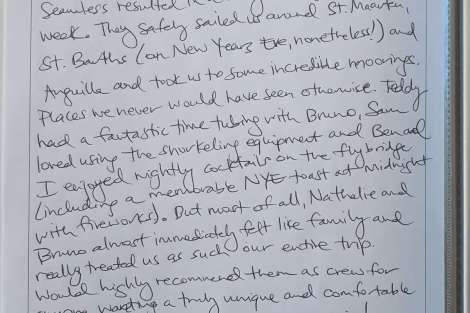 Seamless resulted in
week. They safely sailed us around St. Maarten,
St. Barths (on New Years Eve, nonetheless!) and
Anguilla and took us to some incredible moorings.
Places we never would have seen otherwise. Teddy
had a fantastic time tubing with Bruno, Sam
loved using the snorkeling equipment and Ben and
I enjoyed nightly cocktails on the flybridge
(including a memorable NYE toast at midnight
with fireworks). But most of all, Nathalie and
Bruno almost immediately felt like family and
really treated us as such our entire trip.
Would highly recommend them as crew for
wanting a truly unique and comfortable